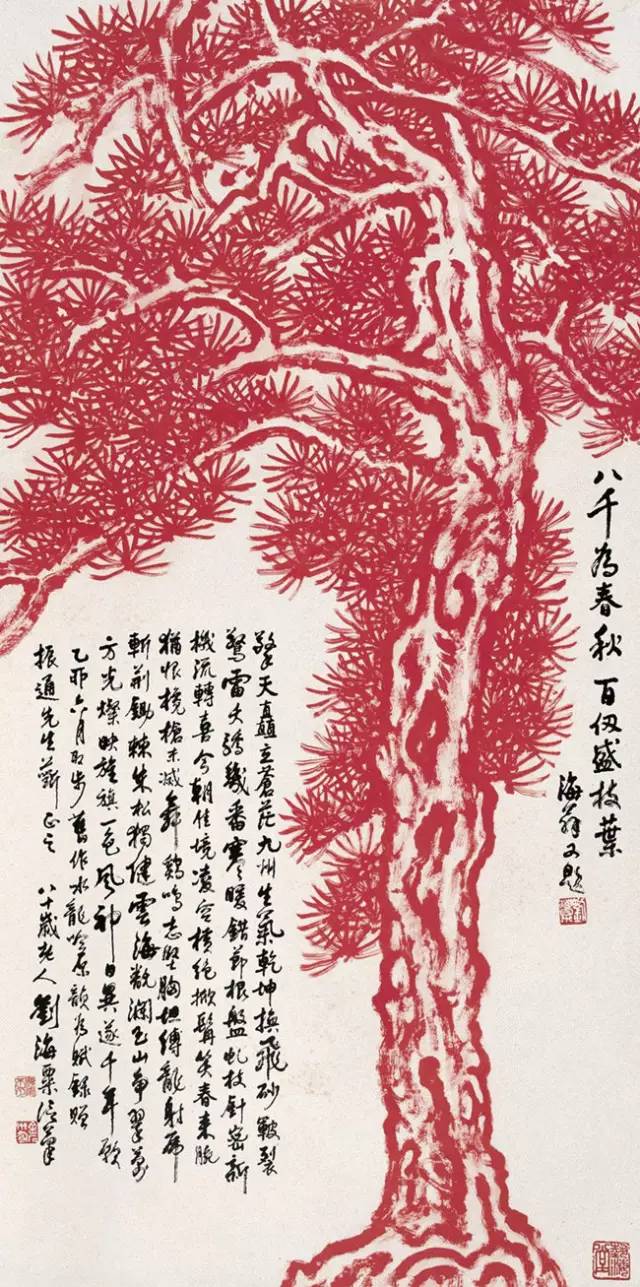 八千為春秋百仞盛枝葉
海翁又題
擎天矗立蒼茫九州生氣乾坤換飛砂皸裂
驚雷夭矯幾番寒暖錯節根盤虬枝針密新
機流轉喜今朝佳境凌空橫絕掀髯笑春來晚
猶恨欃槍未滅舞鷄鳴志堅胸坦縛龍射虎
斬荊鋤棘朱松獨健雲海瀾玉山爭翠萬
方光燦映旌旗一色風神日異遂千年願
乙卯六月步舊作水龍吟原韻為賦錄贈
振通先生蘄正之 八十歲老人劉海粟